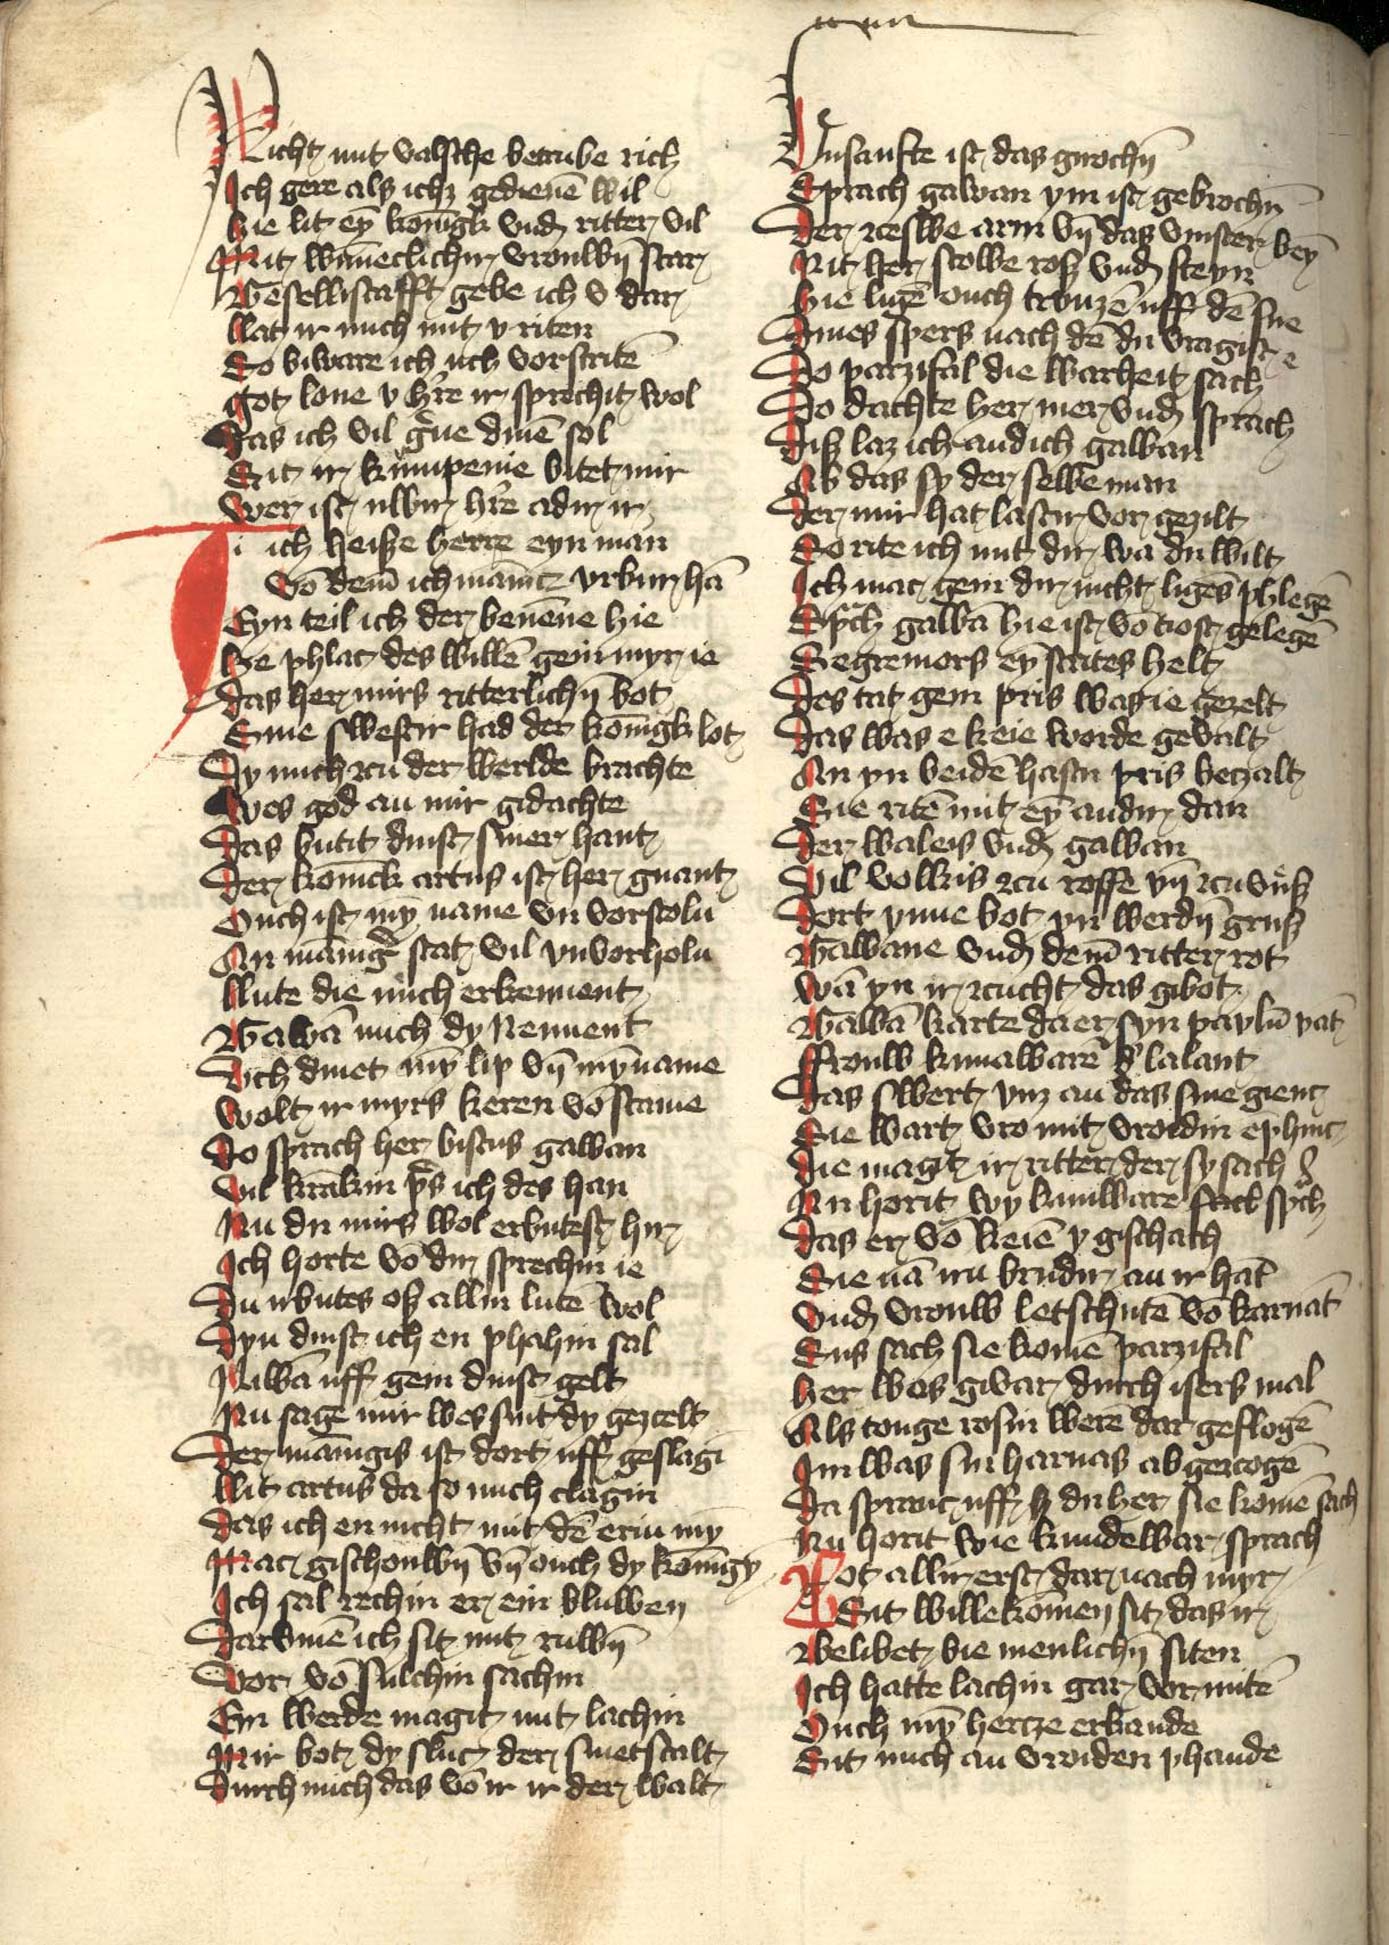 Nicht mit valsche betrube rich
Ich gere als ichz gedienē wil
hie lit eȳ konīgk vnd ritter vil
Mit wūneclichir vrouwȳ scar
Geselliscafft gebe ich v dar
llat ir mich mit v riten
So biware ich uch vorstritē
got lone v h're ir sprechit wol
das ich vil g'ne dinē sol
Sit ir kumpenie bitet mir
wer ist uwir h're adir ir
i ich heisze herre eyn man
Vō dem̄ ich māinc vrbur hā
Eyn teil ich der benēne hie
he phlac des willē gein myr ie
das her mirs ritterlichȳ bot
Sine swestir had der konīgk lot
Dy mich zcu der werlde brachte
wes god an mir gidachte
Das butit dinst siner hant
der konīck artus ist her gnant
Ouch ist mȳ name vn vorstoln
An mānig' stat vil vnvorholn
llute die mich erkennent
Gawā mich dy Nennent
Uch dinet mȳ lip vn̄ mȳ name
wolt ir myrs keren vō scame
do sprach her bistus gawan
vil krākin p's ich des han
Nu du mirs wol erbutest hir
Ich horte vō dir sprechin ie
Du irbutes osz allin lutē wol
Dyn dinst ich en phahin sal
Niwā uff gein dinst gelt
Nu sage mir wes sint dy gezcelt
Der mānigis ist dort uff geslagī
llit artus da so much clagin
das ich en nicht mit dē erin my
Mac gischouwȳ vn̄ ouch dy konīgȳ
Ich sal rechin er ein bluwen
Darvmē ich sit mit ruwȳ
Vor vō sulchin sachin
Ein werde magit mit lachin
Mir bot dy sluc der sinetscalt
durch mich das vō ir ir der walt
Vnsanfte ist das girochn̄
Sprach gawan ym ist gebrochn̄
Der zceswe arm vn̄ das vinster beȳ
Rit her scolbe rosz vnd steyn
hie ligē ouch trunzē uff dē sne
dines spers nach dē du vragist e
Do parzifal die warheit sach
Do dachte her mer vnd sprach
disz laz ich an dich gawan
Ab das sy der selbe man
der mir hat lastir vor gezilt
So rite ich mit dir wa du wilt
Ich mac gein dir nicht liges phlegē
Sp'ch gawā hie ist vō tiost gelegē
Segremors eȳ strites helt
des tat gein pris was ie gezelt
Das was e keie worde gevalt
An yn beidē hastu pris bezalt
Sie ritē mit eȳ andir dan
der waleis vnd gawan
Vil volkis zcu rosse vn̄ zcu vusz
Dort ynne bot yn werdȳ grusz
Gawane vnd dem̄ ritter rot
wā yn ir zcucht das gibot
Gawā karte da er syn pavlū vāt
ffrouw kunawarē d' lalant
Das swert ym an das sine gienc
Sie wart vro mit vroidin ēphinc
die magit ir ritter der sy sach
Nu horit wy kunware sp'ch
das er vō keiē y gischach
Sie nā irn brudir an ir hāt
vnd vrouw letschutē vō karnāt
Sus sach sie komē parzifal
her was givar durch isers mal
Als touge rosin werē dar geflogē
Im was sin harnas ab gezcogē
Da spranc uff do her sie komē sach
Nu horit wie kunedewar sprach
Got allir erst dar nach myr
Sit willekomen sit das ir
Belibet bie menlichȳ siten
Ich hatte lachin gar vor mitē
Ouch mȳ hertze erkande
Sit mich an vroiden phande